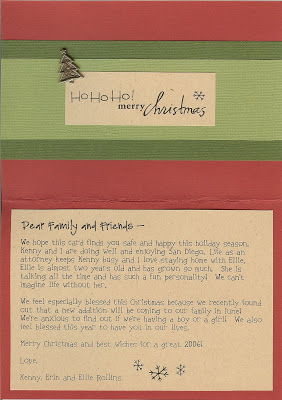 HO HO HO!
merry Christmas
Dear Family and Friends –
We hope this card finds you safe and happy this holiday season.
Kenny and I are doing well and enjoying San Diego. Life as an
attorney keeps Kenny busy and I love staying home with Ellie.
Ellie is almost two years old and has grown so much. She is
talking all the time and has such a fun personality! We can't
imagine life without her.
We feel especially blessed this Christmas because we recently found
out that a new addition will be coming to our family in June!
We're anxious to find out if we're having a boy or a girl! We also
feel blessed this year to have you in our lives.
Merry Christmas and best wishes for a great 2006!
Love,
Kenny, Erin and Ellie Rollins